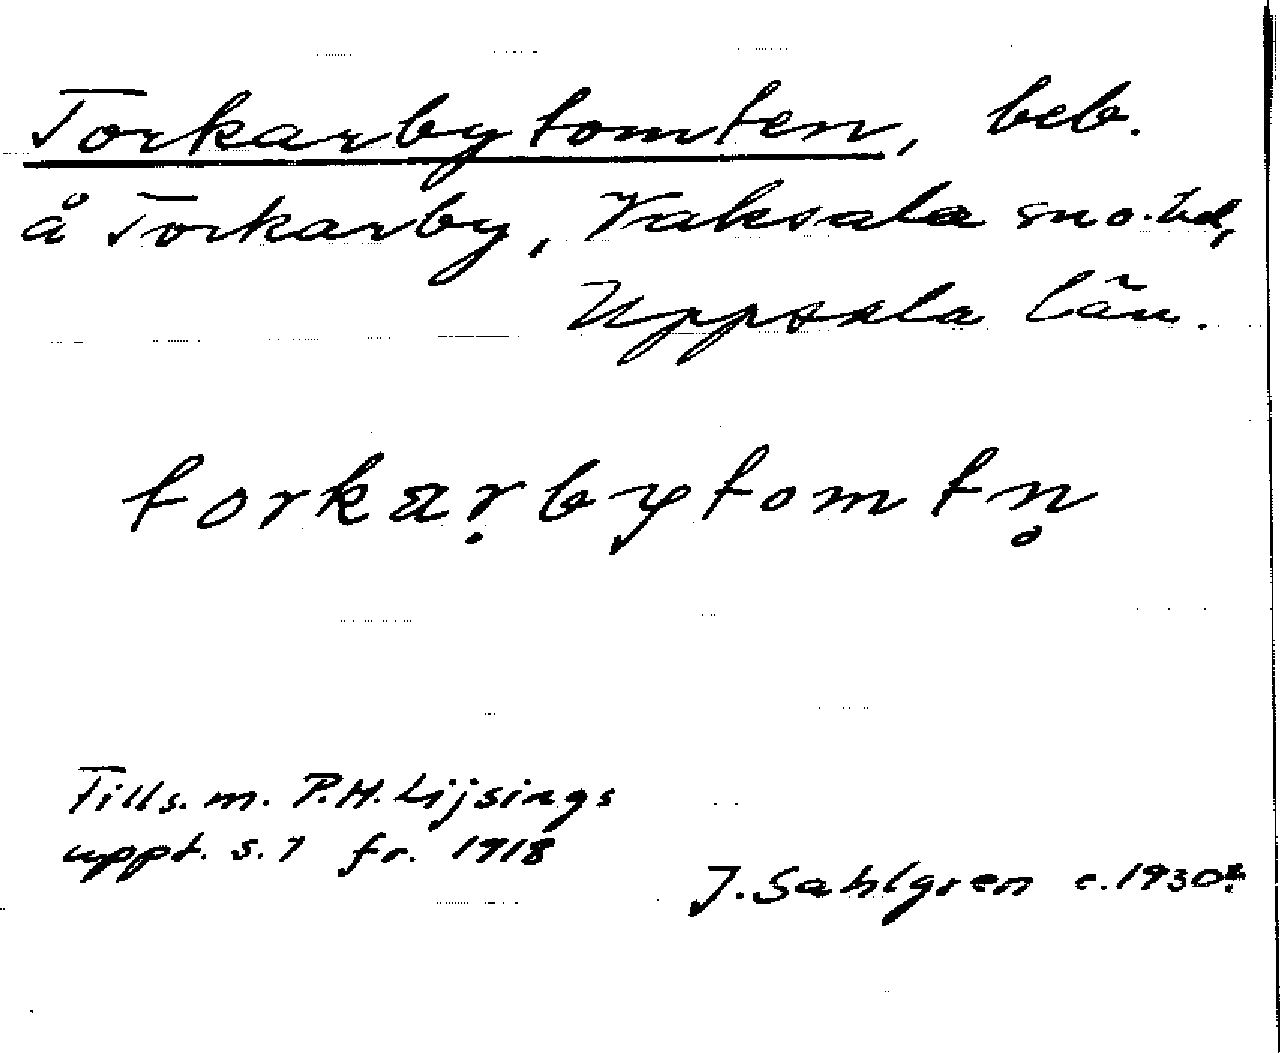 Torkarbytomten, beb.
å Torkarby, Vaksala sn o. hd,
Uppsala län.
torkaṛbytomtn̥
Tills. m. P.H. Lijsings
uppt. s. 7 fr. 1918
J. Sahlgren c. 1930?